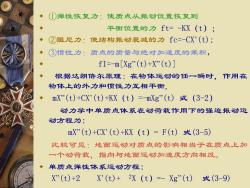 ①弹性恢复力: 使质点从振动位置恢复到
平衡位置的力 ft= -KX (t) ;
②阻尼力: 使结构振动衰减的力 fc=-CX'(t);
③惯性力: 质点的质量与绝对加速度的乘积,
fI=-m[Xg"(t)+X"(t)]
根据达朗倍尔原理: 在物体运动的任一瞬时, 作用在
物体上的外力和惯性力互相平衡,
mX"(t)+CX'(t)+KX (t) =-mXg"(t) 式 (3-2)
动力学中单质点体系在动荷载作用下的强迫振动运
动程方为:
mX"(t)+CX'(t)+KX (t) = F(t) 式(3-5)
比较可见: 地面运动对质点的影响相当于在质点上加
一个动荷载, 指向与地面运动加速度方向相反。
单质点弹性体系运动方程:
X"(t)+2 X'(t)+ ²X (t) =- Xg"(t) 式(3-9)